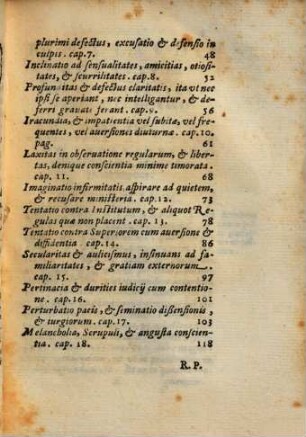 plurimi defectus, excusatio & defensio in
culpis. cap.7. 48
Inclinatio ad sensualitates, amicitias, otiosi-
tates, & scurrilitates. cap.8. 52
Profunditas & defectus claritatis, ita vt nec
ipsi se aperiant, nec intelligantur, & de-
ferri grauati ferant. cap.9. 56
Iracundia, & impatientia vel subitæ, vel fre
quentes, vel auersiones diuturnæ. cap.10.
pag. 61
Laxitas in obseruatione regularum, & liber-
tas, denique conscientia minime timorata.
cap.11. 68
Imaginatio infirmitatis aspirare ad quietem,
& recusare ministeria. cap.12. 73
Tentatio contra Institutum, & aliquot Re
gulas quæ non placent. cap.13. 78
Tentatio contra Superiorem cum auersione &
diffidentia cap.14. 86
Secularitas & aulicismus, insinuans ad fa-
miliaritates, & gratiam externorum.
cap.15. 97
Pertinacia & durities iudicij cum contentio-
ne. cap.16. 101
Perturbatio pacis, & seminatio dissensionis,
& iurgiorum. cap.17. 103
Melancholia, Scrupuli, & angusta conscien-
tia. cap.18. 118
R.P.